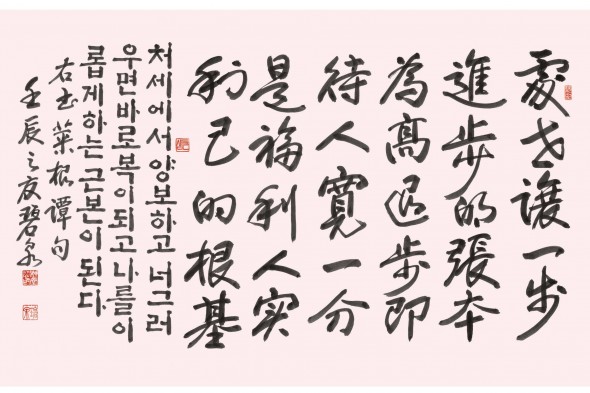 處世讓一步
進步的張本
為高退步即
待人寬一分
是福利人实
利己的根基
처세에서 양보하고 너그러
우면 바로 복이 되고 나를 이
롭게 하는 근본이 된다
右书菜根譚句
壬辰之 碧泉